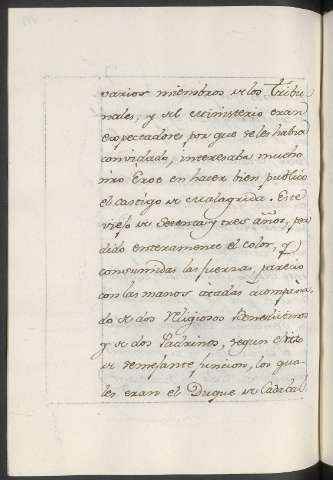 varios miembros de los Tribu
nales, y del Ministerio eran
expectadores por que se les habia
convidado, interesaba mucho
nro Eroe en hacer bien publico
el castigo de Malagrida. Este
viejo de setenta y tres años, per
dido enteramente el color, y
consumidas las fuerzas, parecio
con las manos atadas acompaña
do de dos Religiosos Benedictinos
y de dos Padrinos, segun el rito
de semejante funcion, los qua
les eran el Duque de Cadabal